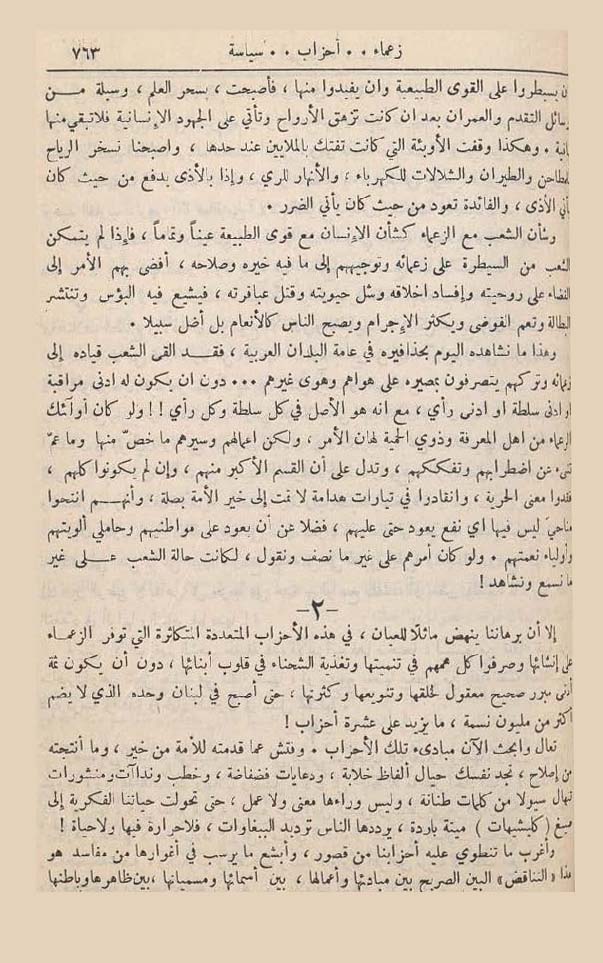 زعماء ٠٠ أحزاب ٠٠ سياسة ٧٦٣
ن يسيطروا على القوى الطبيعية وان يفيدوا منها ، فأصبحت ، بسحر العلم ، وسيلة مـــن
رسائل التقدم والعمران بعد ان كانت تزهق الأرواح وتأتي على الجهود الإنسانية فلا تبقي منها
باقية ٠ وهكذا وقفت الأوبئة التي كانت تفتك بالملايين عند حدها ، واصبحنا نسخر الرياح
للمطاحن والطيران والشلالات للكهرباء ، والأنهار للري ، وإذا بالأذى يدفع من حيث كان
يأتي الأذى ، والفائدة تعود من حيث كان يأتي الضرر ٠
وشأن الشعب مع الزعماء كشأن الإنسان مع قوى الطبيعة عيناً وتماماً ، فإذا لم يتمكن
الشعب من السيطرة على زعمائه وتوجيههم إلى ما فيه خيره وصلاحه ، أفضى بهم الأمر إلى
القضاء على روحيته وإفساد اخلاقه وشل حيويته وقتل عباقرته ، فيشيع فيه البؤس وتنتشر
البطالة وتعم الفوضى ويكثر الإجرام ويصبح الناس كالأنعام بل أضل سبيلا ٠
وهذا ما نشاهده اليوم بحذافيره في عامة البلدان العربية ، فقـــد القى الشعب قياده إلى
زعمائه وتركهم يتصرفون بمصيره على هواهم وهوى غيرهم ٠٠٠ دون ان يكون له ادنى مراقبة
او ادنى سلطة او ادنى رأي ، مع انه هو الأصل في كل سلطة وكل رأي !! ولو كان أولئك
الزعماء من اهل المعرفة وذوي الحمية لهان الأمر ، ولكن اعمالهم وسيرهم ما خصّ منها وما عمّ
تنبىء عن اضطرابهم وتفككهم ، وتدل على أن القسم الأكبر منهم ، وإن لم يكونوا كلهم ،
فقدوا معنى الحرية ، وانقادوا في تيارات هدامة لا تمت إلى خير الأمة بصلة ، وأنهـــم انتحوا
مناحي ليس فيها اي نفع يعود حتى عليهم ، فضلا عن أن يعود على مواطنيهم وحاملي ألويتهم
وأولياء نعمتهم ٠ ولو كان أمرهم على غير ما نصف ونقول ، لكانت حالة الشعب عـــلى غير
ما نسمع ونشاهد !
-٢-
إلا أن برهاننا ينهض ماثلا للعيان ، في هذه الأحزاب المتعددة المتكاثرة التي توفر الزعمـاء
على إنشائها وصرفوا كل همهم في تنميتها وتغذية الشحناء في قلوب أبنائها ، دون أن يكون ثمة
أدنى مبرر صحيح معقول لخلقها وتنويعها وكثرتها ، حتى أصبح في لبنان وحده الذي لا يضم
أكثر من مليون نسمة ، ما يزيد على عشرة أحزاب !
تعال وابحث الآن مبادىء تلك الأحزاب ٠ وفتش عما قدمته للأمة من خير ، وما أنتجته
من إصلاح ، تجد نفسك حيال ألفاظ خلابة ، ودعايات فضفاضة ، وخطب ونداآت ومنشورات
تنهال سيولا من كلمات طنانة ، وليس وراءها معنى ولا عمل ، حتى تحولت حياتنا الفكرية إلى
صيغ ( كليشيهات ) ميتة باردة ، يرددها الناس ترديد الببغاوات ، فلا حرارة فيها ولا حياة !
وأغرب ما تنطوي عليه أحزابنا من قصور ، وأبشع ما يرسب في أغوارها من مفاسد هو
هذا «التناقض» البين الصريح بين مبادئها وأعمالها ، بين أسمائها ومسمياتها ، بين ظاهرها وباطنها